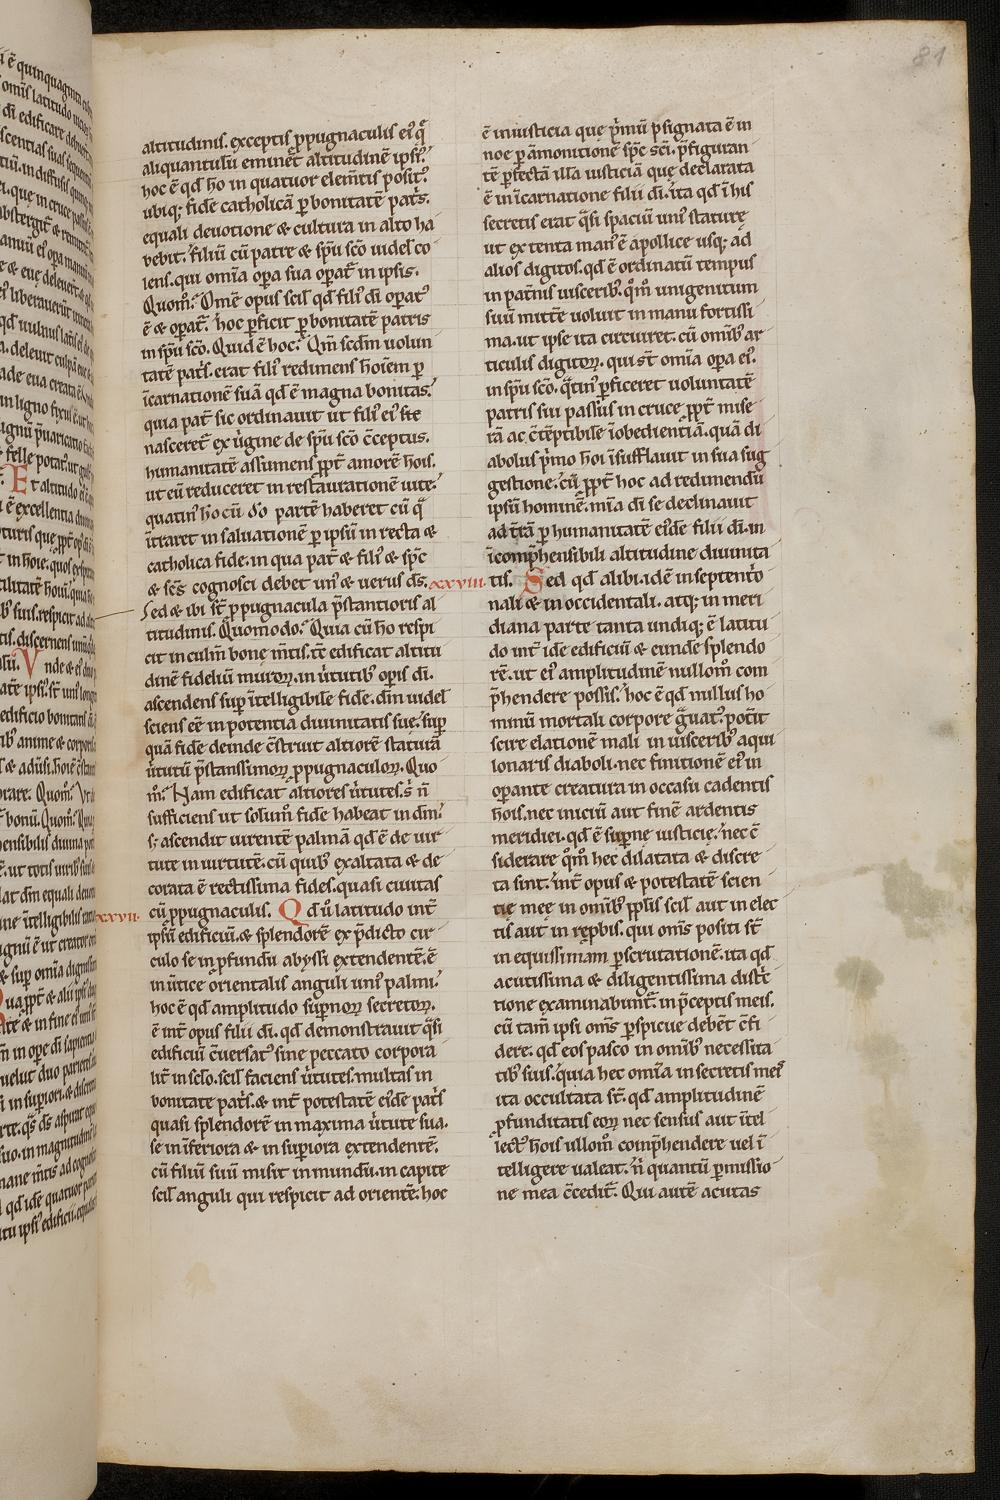 81
altitudinis. exceptis ꝓpugnaculis ei᷒ q̄
aliquantulū eminēt altitudinē ipsi᷒.
hoc ē qđ hō in quatuor elem̄tis posit᷒.
ubiq; fidē catholicā ꝑ bonitatē pat̄s.
equali deuotione & cultura in alto ha
bebit. filiū cū patre & sp̄u sc̄o uidel̄ co
lens. qui om̄ia oꝑa sua oꝑat̄ in ipsis.
Quom̄. Om̄e opus scil̄ qđ fili᷒ dī oꝑat᷒
ē & oꝑat̄. hoc ꝑficit ꝑ bonitatē patris
in sp̄u sc̄o. Quid ē hoc. Qm̄ scđm uolun
tatē pat̄s. erat fili᷒ redimens hoīem ꝑ
īcarnationē suā qđ ē magna bonitas.
quia pat̄ sic ordinauit ut fili᷒ ei᷒ s̄te
nasceret̄ ex ūgine de sp̄u sc̄o c̄ceptus.
humanitatē assumens ꝓpt̄ amorē hoīs.
ut eū reduceret in restaurationē uite.
quatin᷒ hoc cū do partē haberet cū q̄
īt̄raret in saluationē ꝑ ipsū in recta &
catholica fide. in qua pat̄ & fili᷒ & sp̄c
& sēs cognosci debet un᷒ & uerus ds̄.
Sed & ibi st̄ ꝓpugnacula p̄stantioris al
titudinis. Quomodo. Quia cū hō respi
cit in culm̄ bone m̄tis. tē edificat altitu
dinē fideliū muroꝝ. in ūtutib᷒ oꝑis dī.
ascendens suꝑ ītelligibilē fidē. dīm uidel̄
sciens eē in potentia diuinitatis sue. suꝑ
quā fidē deinde c̄struit altiorē staturā
ūtutū p̄stantissimoꝝ ꝓpugnaculoꝝ. Quo
m̄. Nam edificat altiores ūtutes. s; n̄
sufficiens ut solum̄ fidē habeat in dm̄.
s; ascendit uirentē palmā qđ ē de uir
tute in uirtutē. cū quib᷒ exaltata & de
corata ē rectissima fides. quasi ciuitas
cū ꝓpugnaculis. Qđ ū latitudo int̄
ipsū edificiū. & splendorē ex p̄dicto cir
culo se in ꝓfundū abyssi extendentē. ē
in ūtice orientalis anguli uni᷒ palmi.
hoc ē qđ amplitudo suꝑnoꝝ secretoꝝ.
ē int̄ opus filii dī. qđ demonstrauit q̄si
edificiū c̄uersat᷒ sine peccato corpora
lit̄ in scl̄o. scil̄ faciens ūtutes. multas in
bonitate pat̄s. & int̄ potestatē eiđe pat̄s
quasi splendorē in maxima ūtute sua.
se in īferiora & in suꝑiora extendentē.
cū filiū suū misit in mundū. in capite
scil̄ anguli qui respicit ad orientē. hoc
xxvii.
xxviii.
ē iniusticia que p̄mū p̄signata ē in
noe ꝑ āmonitionē sp̄c scī. p̄figuran
tē ꝑfectā illā iusticiā que declarata
ē in īcarnatione filii dī. ita qđ ī his
secretis erat q̄si spaciū uni᷒ staturę
ut extenta man᷒ ē a pollice usq; ad
alios digitos. qđ ē ordinatū tempus
in pat̄nis uiscerib᷒. q̄m̄ unigenitum
suū mittē uoluit in manu fortissi
ma. ut ipse ita circuiret. cū om̄ib᷒ ar
ticulis digitoꝝ. qui st̄ om̄ia oꝑa ei᷒.
in sp̄u sc̄o. q̄tin᷒ ꝑficeret uoluntatē
patris sui passus in cruce ꝓpt̄ mise
rā ac c̄tēptibilē īobedientiā. quā di
abolus p̄mo hoī īsufflauit in sua sug
gestione. cū ꝓpt̄ hoc ad redimendū
ipsū hominē. mīa dī se declinauit
ad t̄rā ꝑ humanitatē eiđe filii dī. in
īcomp̄hensibili altitudine diuinita
tis. Sed qđ alibi. idē in septent̄o
nali & in occidentali. atq; in meri
diana parte tanta undiq; ē latitu
do int̄ idē edificiū & eundē splendo
rē. ut ei᷒ amplitudinē nullom̄ com
p̄hendere possis. hoc ē qđ nullus ho
minū mortali corpore g̃uat᷒. potīt
scire elationē mali in uiscerib᷒ aqui
lonaris diaboli. nec finitionē ei᷒ in
oꝑante creatura in occasu cadentis
hoīs. nec iniciū aut finē ardentis
meridiei. qđ ē suꝑne iusticie. nec ē
siderare q̄m̄ hec dilatata & discre
ta sint. int̄ opus & potestatē scien
tię mee in om̄ib᷒ ꝑsīis scil̄ aut in elec
tis aut in rep̄bis. qui om̄s positi st̄
in equissimam ꝑscrutationē. ita qđ
acutissima & diligentissima distc̄
tione examinabunt̄. in p̄ceptis meis.
cū tam̄ ipsi om̄s ꝑspicue debēt c̄fi
dere. qđ eos pasco in om̄ib᷒ necessita
tib᷒ suis. quia hec om̄ia in secretis meis
ita occultata st̄. qđ amplitudinē
ꝓfunditatis eoꝝ nec sensus aut ītel
lect᷒ hoīs ullom̄ comp̄hendere uel ī
telligere ualeat. n̄ quantū ꝑmissio
ne mea c̄cedit̄. Qui autē acutas